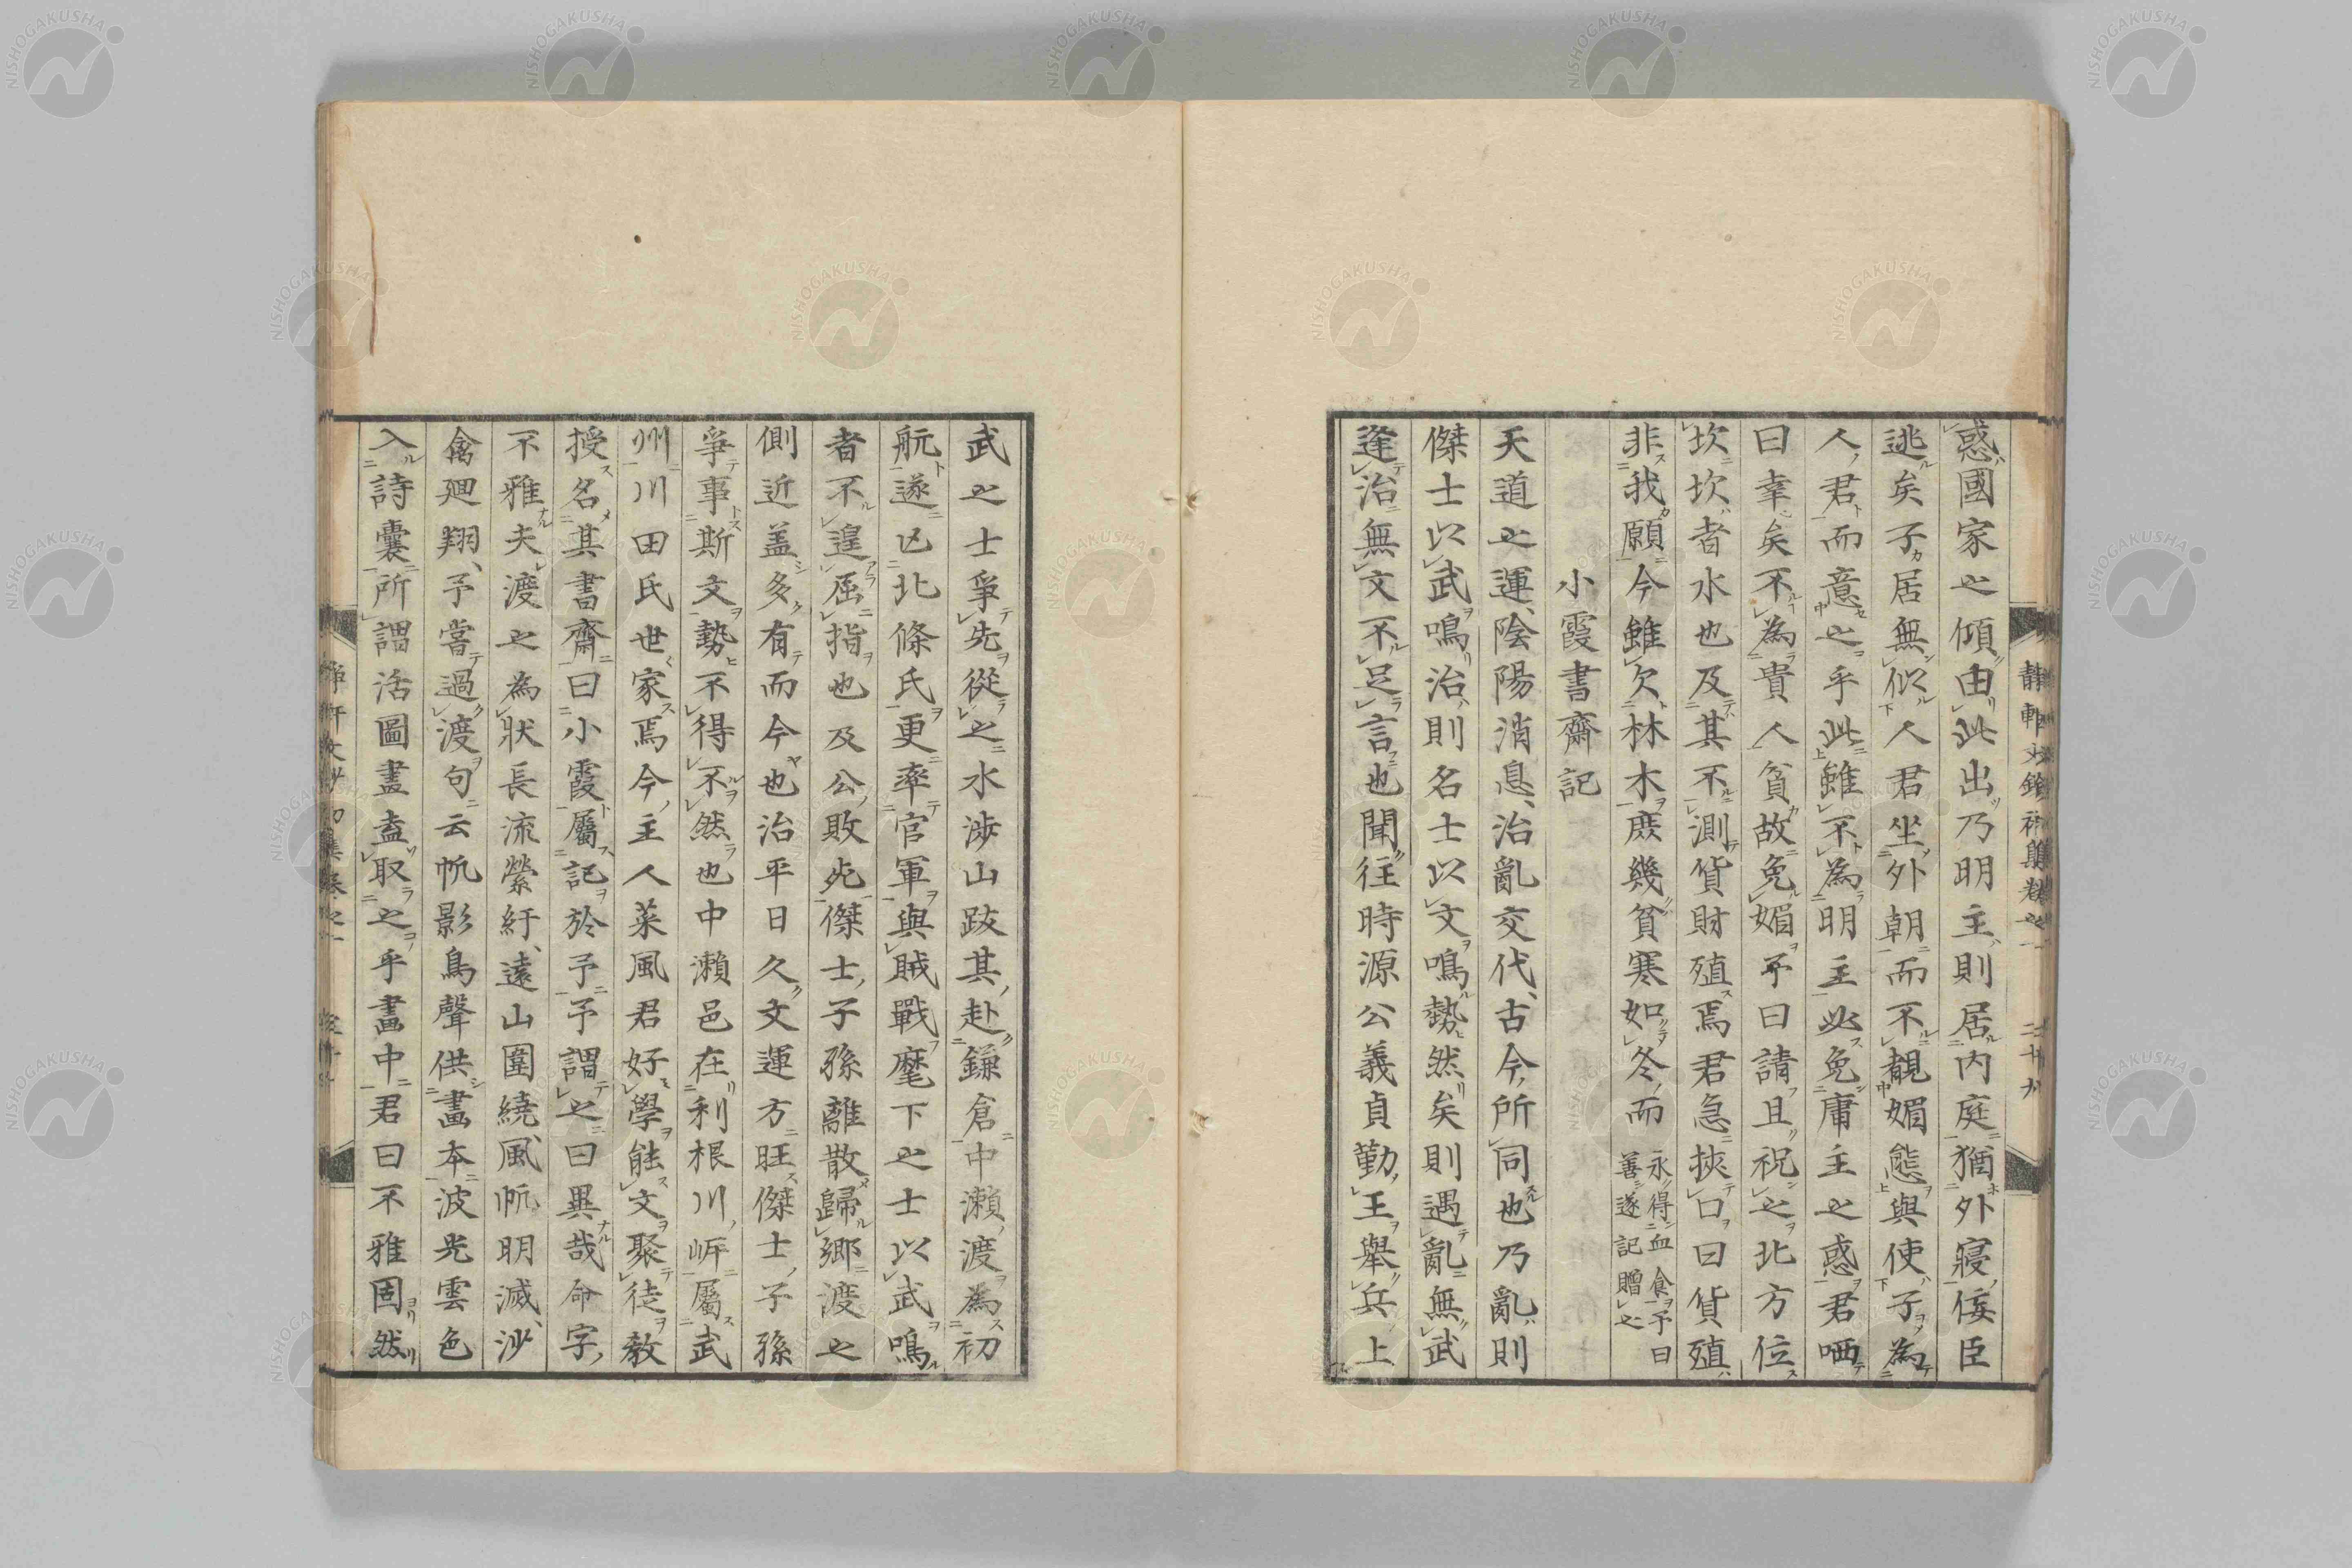 惑國家之傾由此出乃明主則居内庭猶外寢佞臣
逃矣子居無似人君坐外朝而不覩媚態與使子為
人君而意之乎此雖不為明主必免庸主之惑君哂
曰幸矣不為貴人貧故免媚予曰請且祝之北方位
坎坎者水也及其不測貨財殖焉君急挾口曰貨殖
非我願今雖欠林木庶幾貧寒如冬而永得血食予曰
善遂記贈之
小霞書齋記
天道之運陰陽消息治亂交代古今所同也乃亂則
傑士以武鳴治則名士以文鳴勢然矣則遇亂無武
逢治無文不足言也聞往時源公義貞勤王舉兵上
武之士爭先從之水渉山跋其赴鎌倉中瀨渡為初
航遂亡北條氏更率官軍與賊戰麾下之士以武鳴
者不遑屈指也及公敗死傑士子孫離散歸鄉渡之
側近盖多有而今也治平日久文運方旺傑士子孫
爭事斯文勢不得不然也中瀨邑在利根川岸屬武
州川田氏世家焉今主人菜風君好學能文聚徒教
授名其書齋曰小霞屬記於予予謂之曰異哉命字
不雅夫渡之為狀長流縈紆遠山圍繞風帆明滅沙
禽廻翔予嘗過渡句云帆影鳥聲供畫本波光雲色
入詩囊所謂活圖畫盍取之乎畫中君曰不雅固然